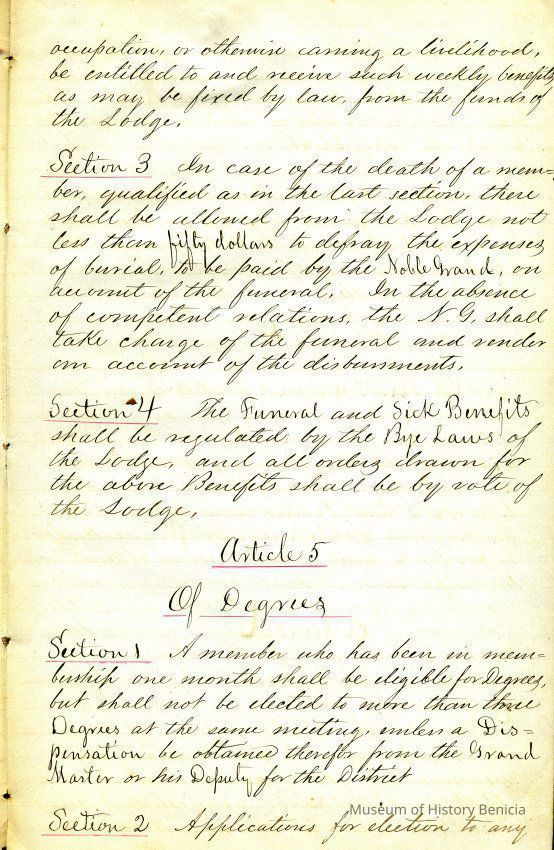 occupation, or otherwise earning a livelihood,
be entitled to and receive such weekly benefits
as may be fixed by law, from the funds of
the Lodge.
Section 3 In case of the death of a mem=
ber, qualified as in the last section, there
shall be allowed from the Lodge not
less than fifty dollars to defray the expenses
of burial, to be paid by the Noble Grand, on
account of the funeral. In the absence
of competent relations, the N. G. shall
take charge of the funeral and render
an account of the disbursments.
Section 4 The Funeral and Sick Benefits
shall be regulated by the Bye Laws of
the Lodge, and all orders drawn for
the above Benefits shall be by vote of
the Lodge.
Article 5
Of Degrees
Section 1 A member who has been in mem=
bership one month shall be eligible for Degrees,
but shall not be elected to more than three
Degrees at the same meeting, unless a Dis=
pensation be obtained therefor from the Grand
Master or his Deputy for the District
Museum of History Benicia
Section 2 Applications for election to any